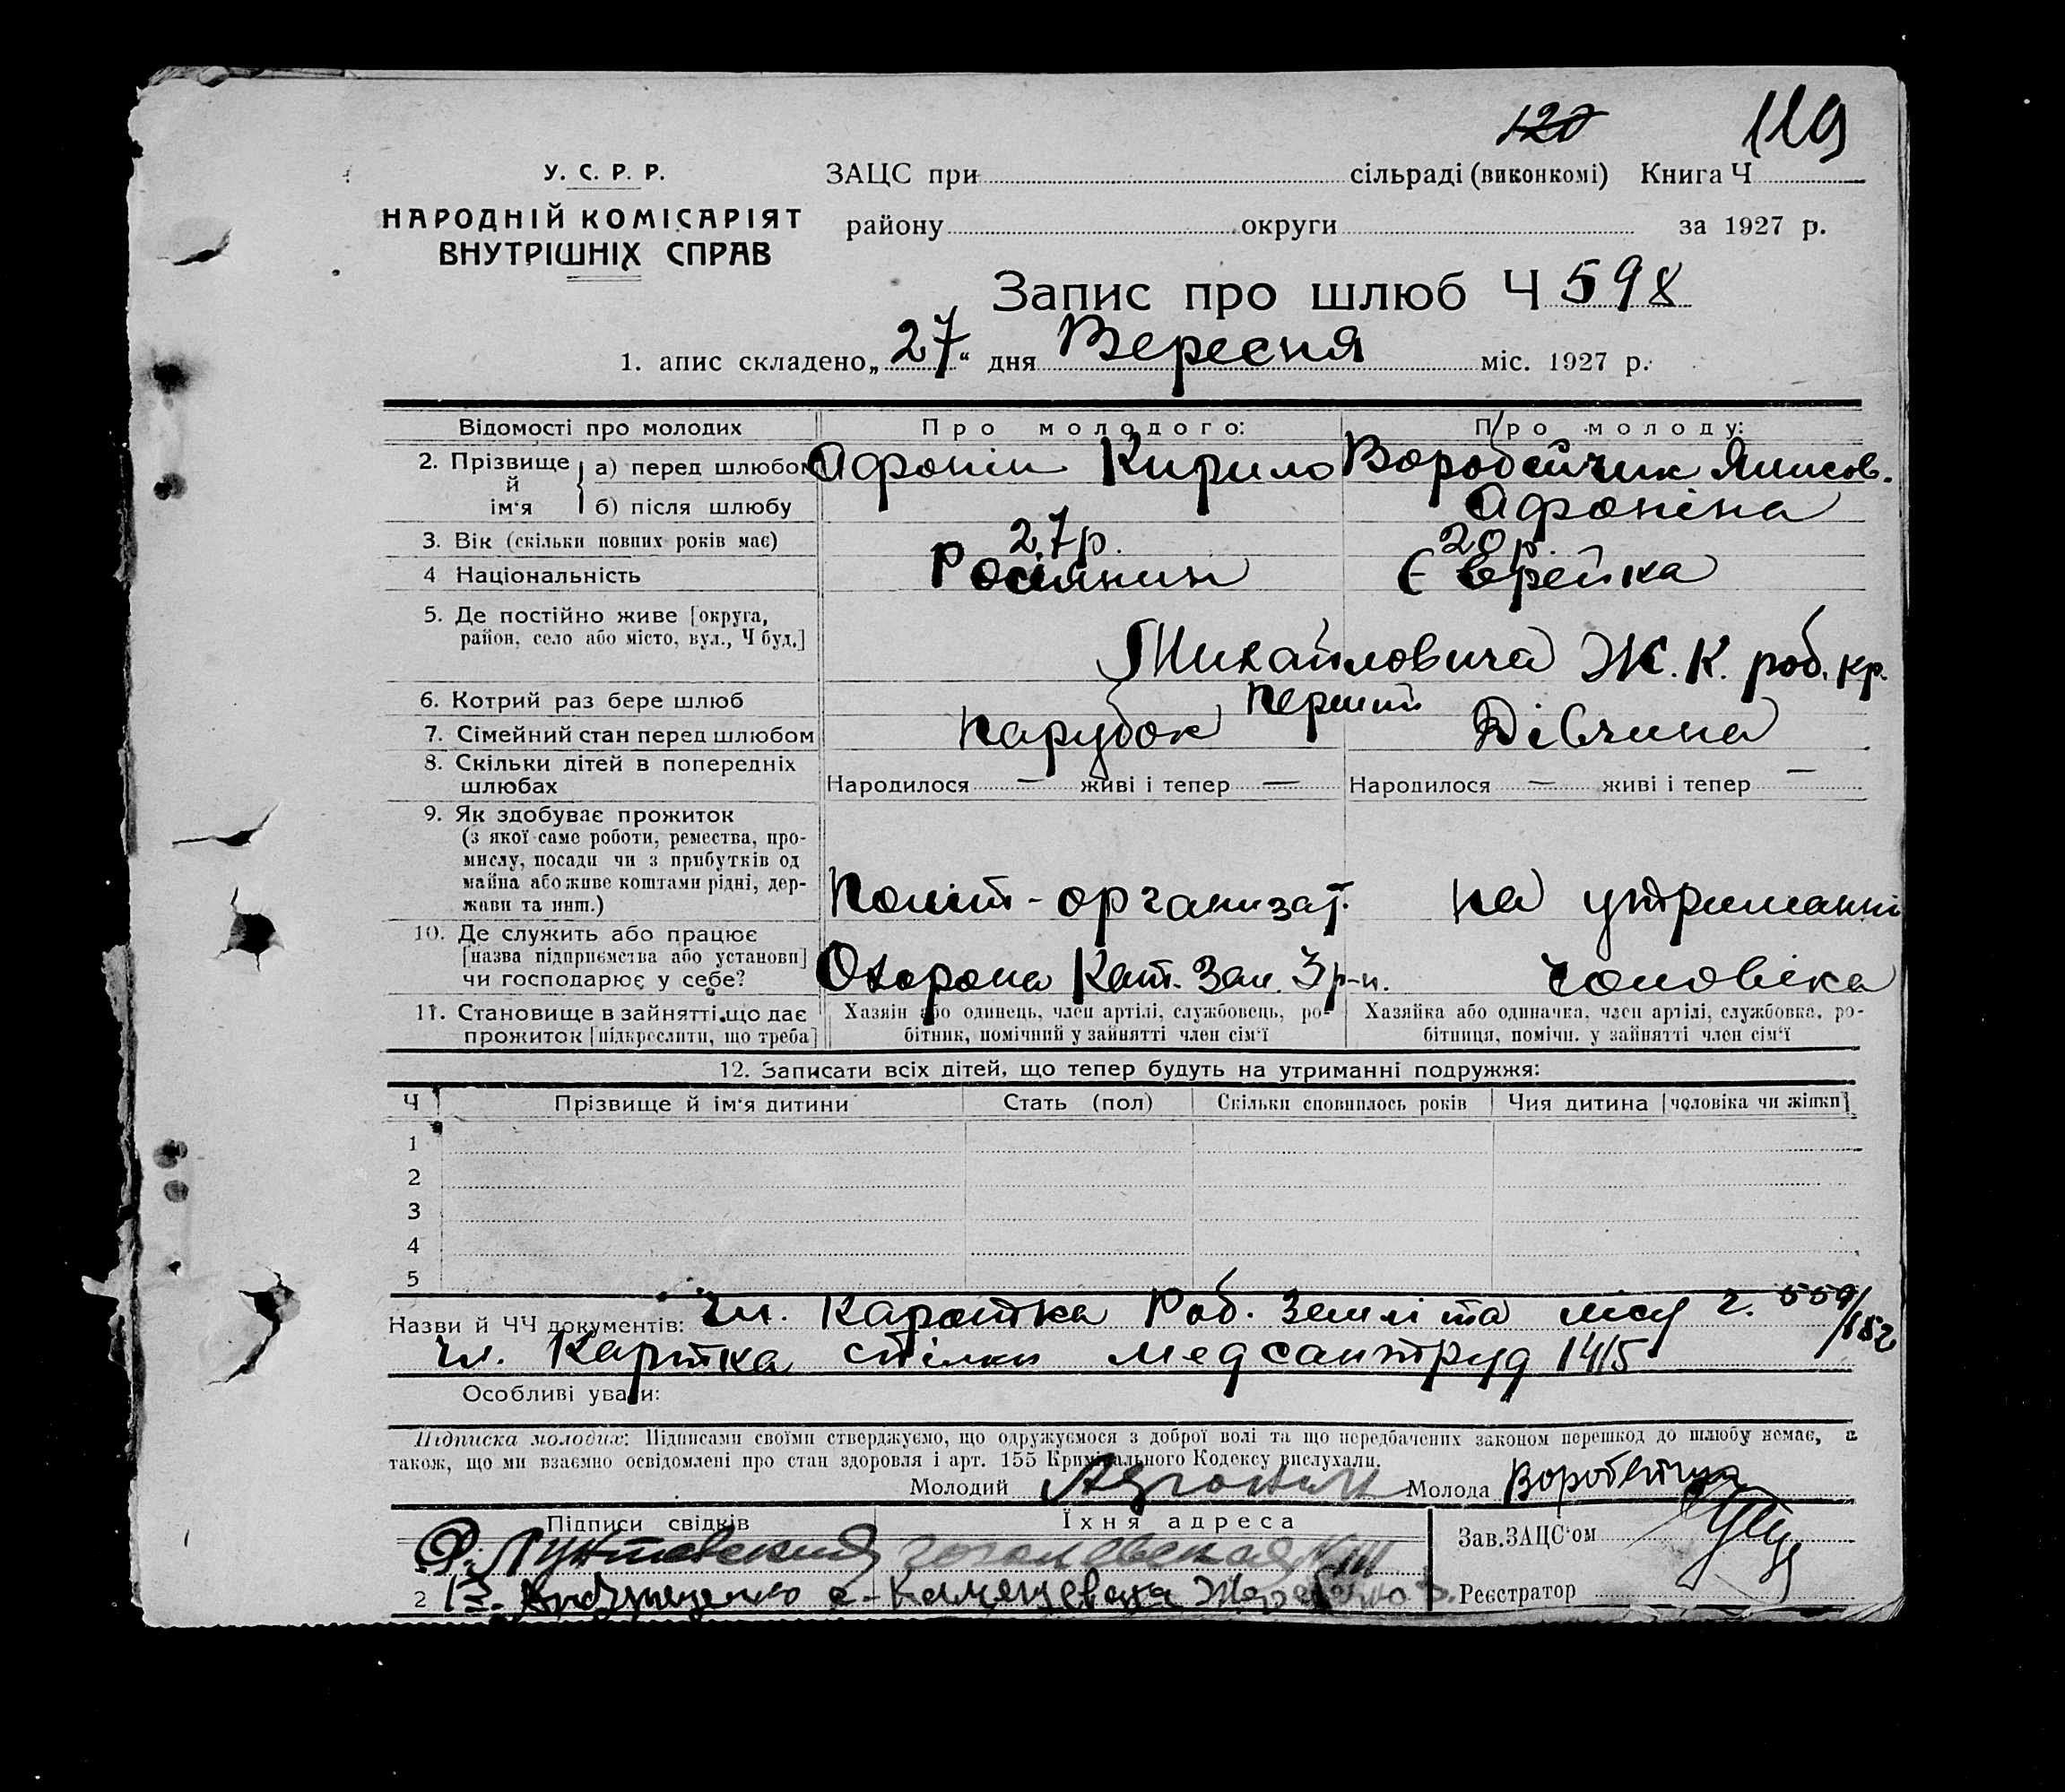 120 119
У. С. Р. Р.
НАРОДНІЙ КОМІСАРІЯТ
ВНУТРІШНІХ СПРАВ
ЗАЦС при сільраді (виконкомі) Книга Ч
району округи за 1927 р.
Запис про шлюб Ч 598
1. апис складено „27“ дня Вересня міс. 1927 р.
Відомості про молодих Про молодого: Про молоду:
2. Прізвище й ім'я а) перед шлюбом Афонін Кирило Воробейчик
б) після шлюбу Афоніна
3. Вік (скільки повних років має) 27 р. 20 р.
4 Національність Росіянин Єврейка
5. Де постійно живе [округа,
район, село або місто, вул., Ч буд.]
Михайловича Ж. К. роб. кр.
6. Котрий раз бере шлюб Перший
7. Сімейний стан перед шлюбом Парубок Дівчина
8. Скільки дітей в попередніх
шлюбах Народилося — живі і тепер — Народилося — живі і тепер —
9. Як здобуває прожиток
(з якої саме роботи, ремества, про-
мислу, посади чи з прибутків од
майна або живе коштами рідні, дер-
жави та инш.) Політ-организат. на утриманні
10. Де служить або працює
[назва підприємства або установи]
чи господарює у себе? Охорона Кат. Зал. 3 р-н. чоловіка
11. Становище в зайнятті що дає
прожиток [підкреслити, що треба]
Хазяїн або одинець, член артілі, службовець, ро-
бітник, помічний у зайнятті член сім'ї
Хазяйка або одиначка, член артілі, службовка, ро-
бітниця, помічн. у зайнятті член сім'ї
12. Записати всіх дітей, що тепер будуть на утриманні подружжя:
Ч Прізвище й ім'я дитини Стать (пол) Скільки сповнилось років Чия дитина [чоловіка чи жінки]
1
2
3
4
5
Назви й ЧЧ документів: Чл. Картка Роб. Землі та лісу
чл. Картка спілки медсантруд 1415
Особливі уваги:
Підписка молодих: Підписами своїми стверджуємо, що одружуємося з доброї волі та що передбачених законом перешкод до шлюбу немає, а
також, що ми взаємно освідомлені про стан здоровля і арт. 155 Кримінального Кодексу вислухали.
Молодий Афонин Молода
Підписи свідків Їхня адреса
Зав. ЗАЦС'ом
2
Реєстратор